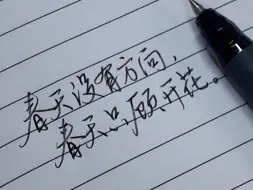 春天没有方向,
春天只顾开花。